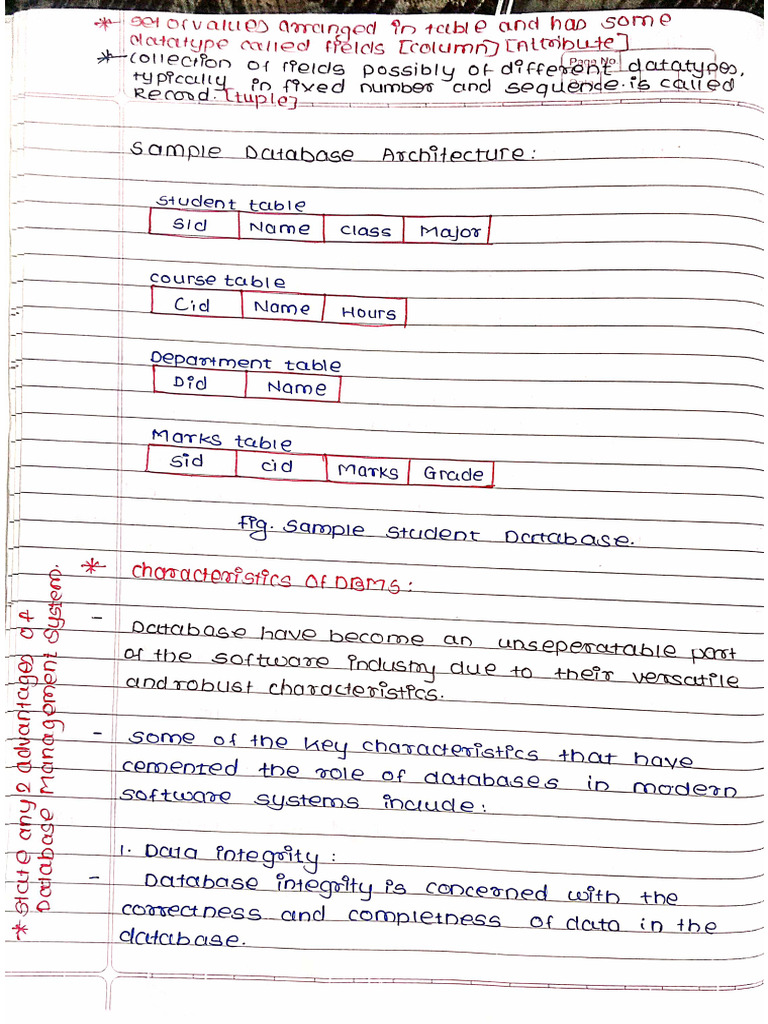 * set of values arranged in table and has some
datatype called fields [column] [Attribute]
* collection of fields possibly of different datatypes,
Page No.
typically in fixed number and sequence is called
Record. [tuple]
Sample Database Architecture:
Student table
Sid Name class Major
course table
Cid Name Hours
Department table
Did Name
Marks table
Sid cid Marks Grade
fig. Sample Student Database.
* characteristics of DBMS:
- Database have become an unseperatable part
of the software industry due to their versatile
and robust characteristics.
- some of the key characteristics that have
cemented the role of databases in modern
software systems include:
1. Data integrity:
- Database integrity is concerned with the
correctness and completness of data in the
database.
* State any 2 advantages of
Database Management System.